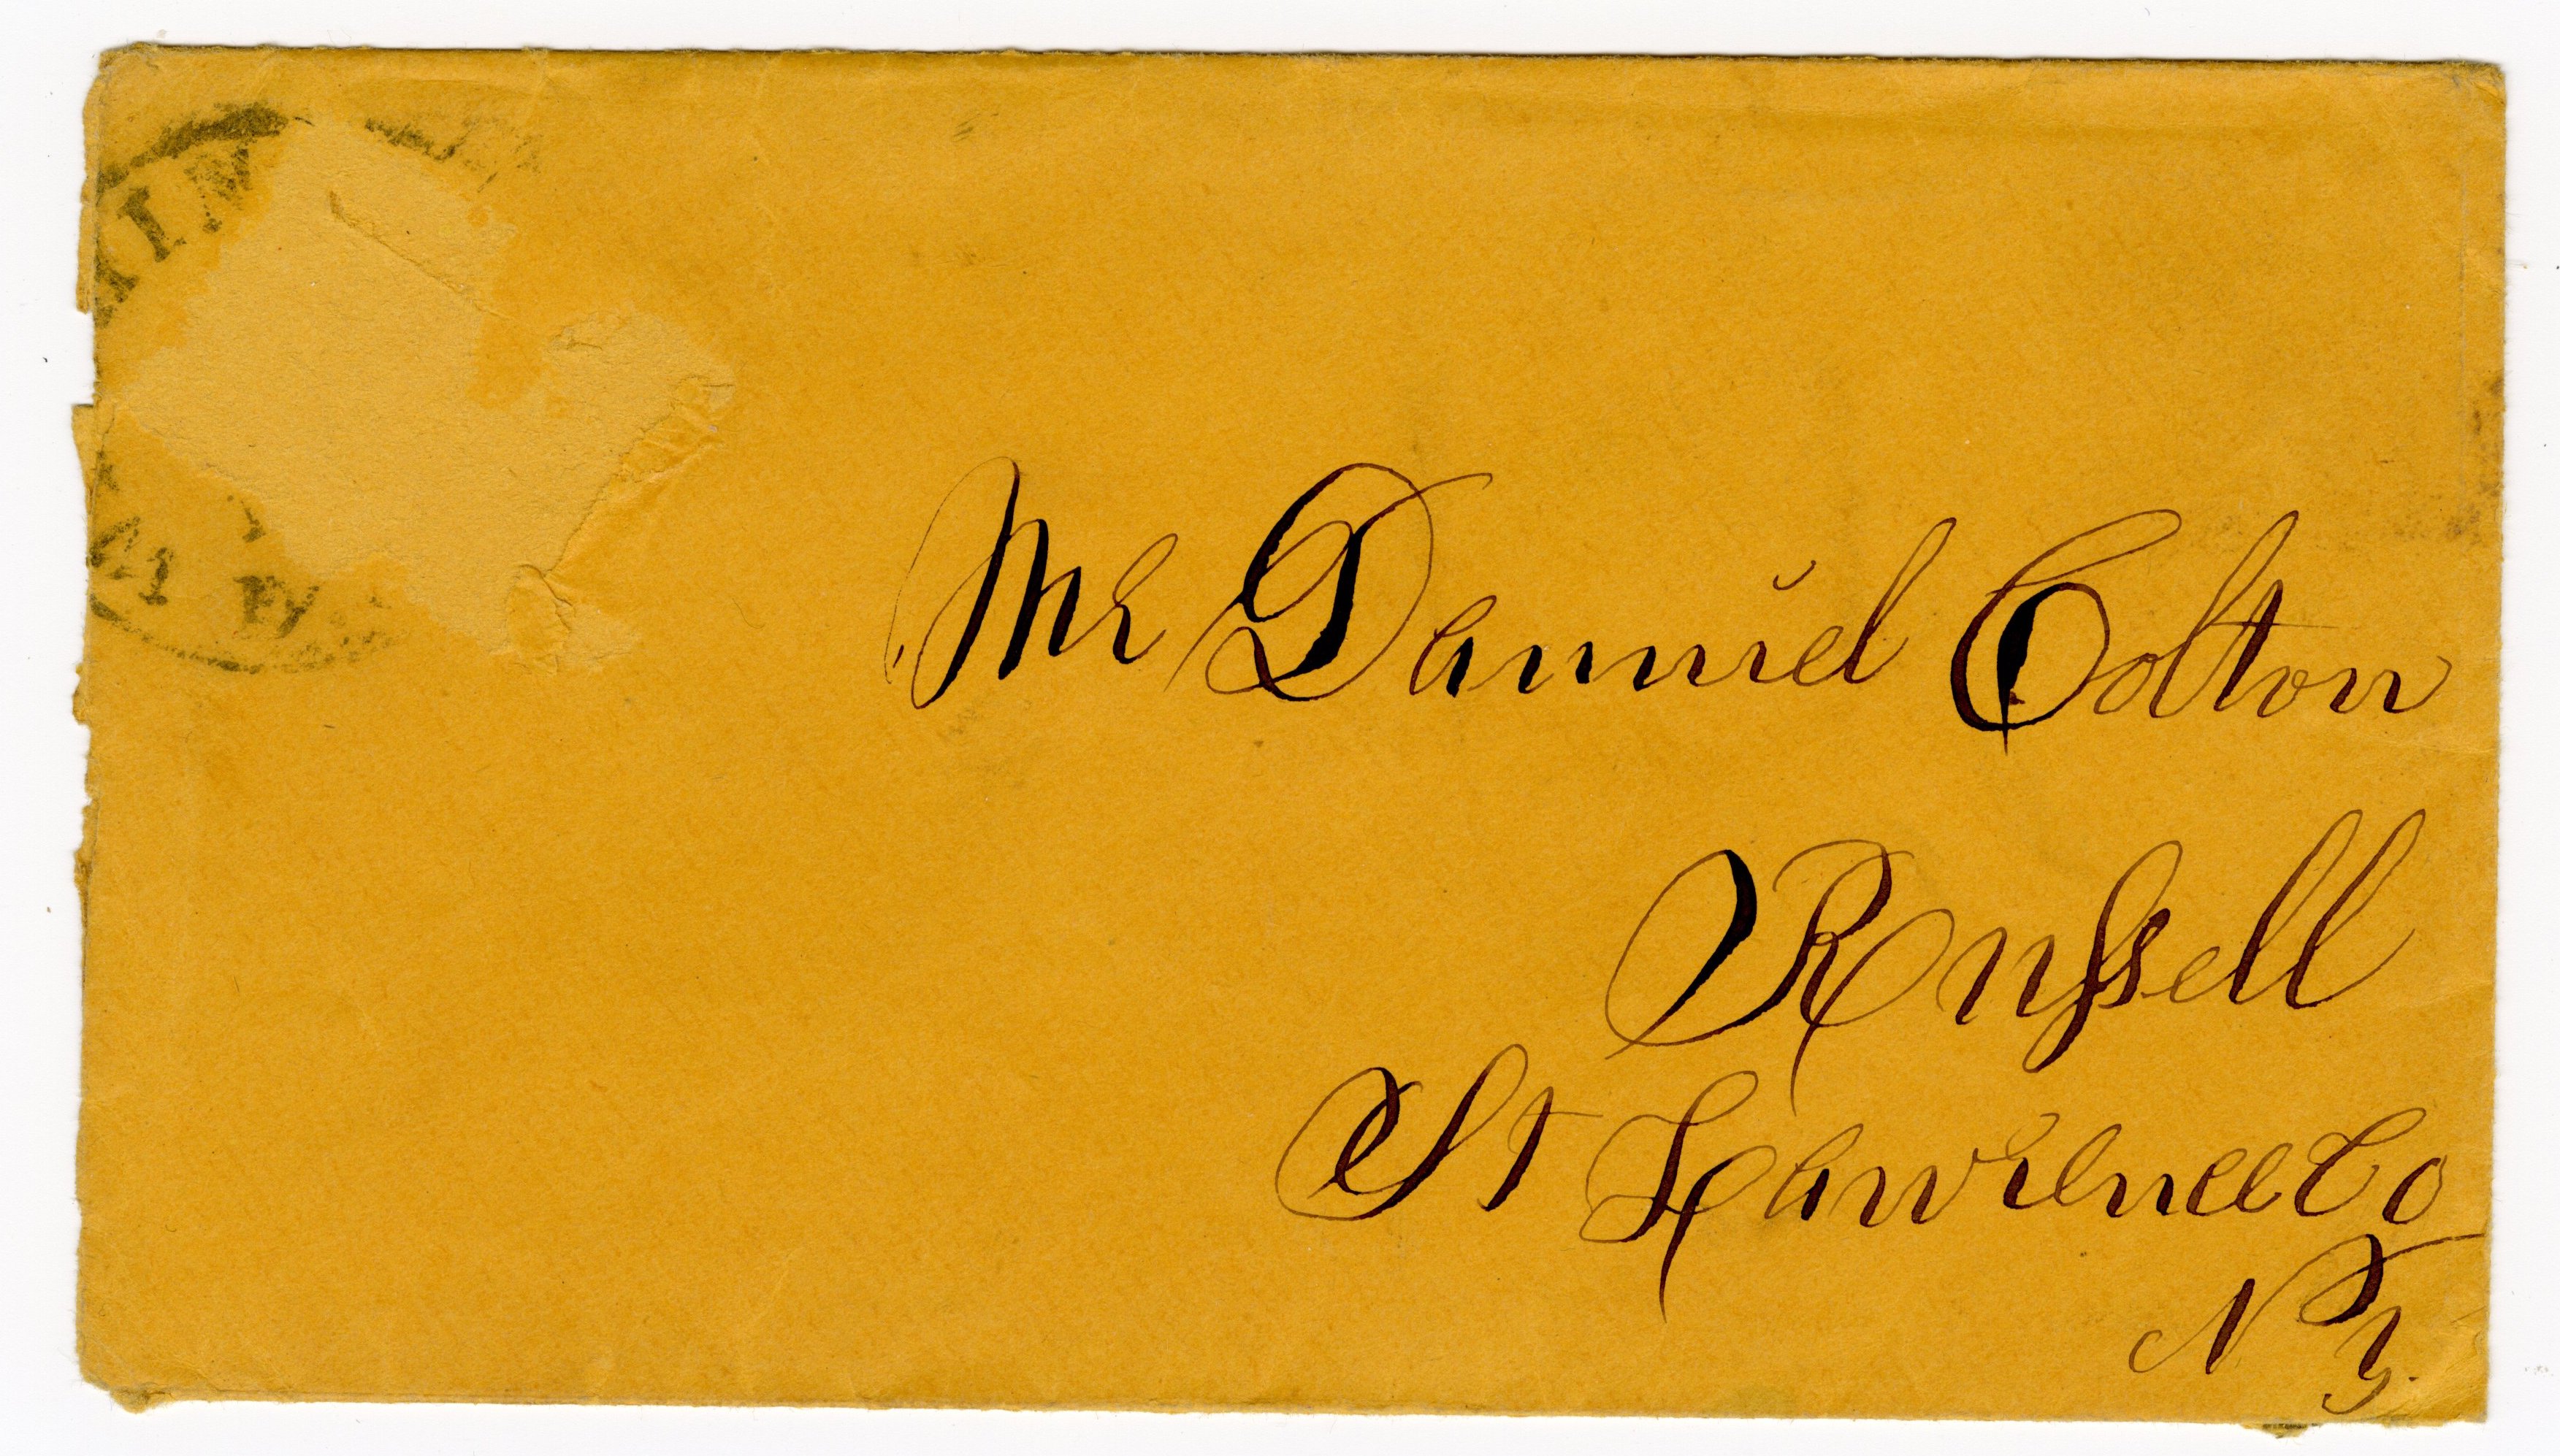 Mr Danniel Colton
Russell
St Lawrence Co
N Y.